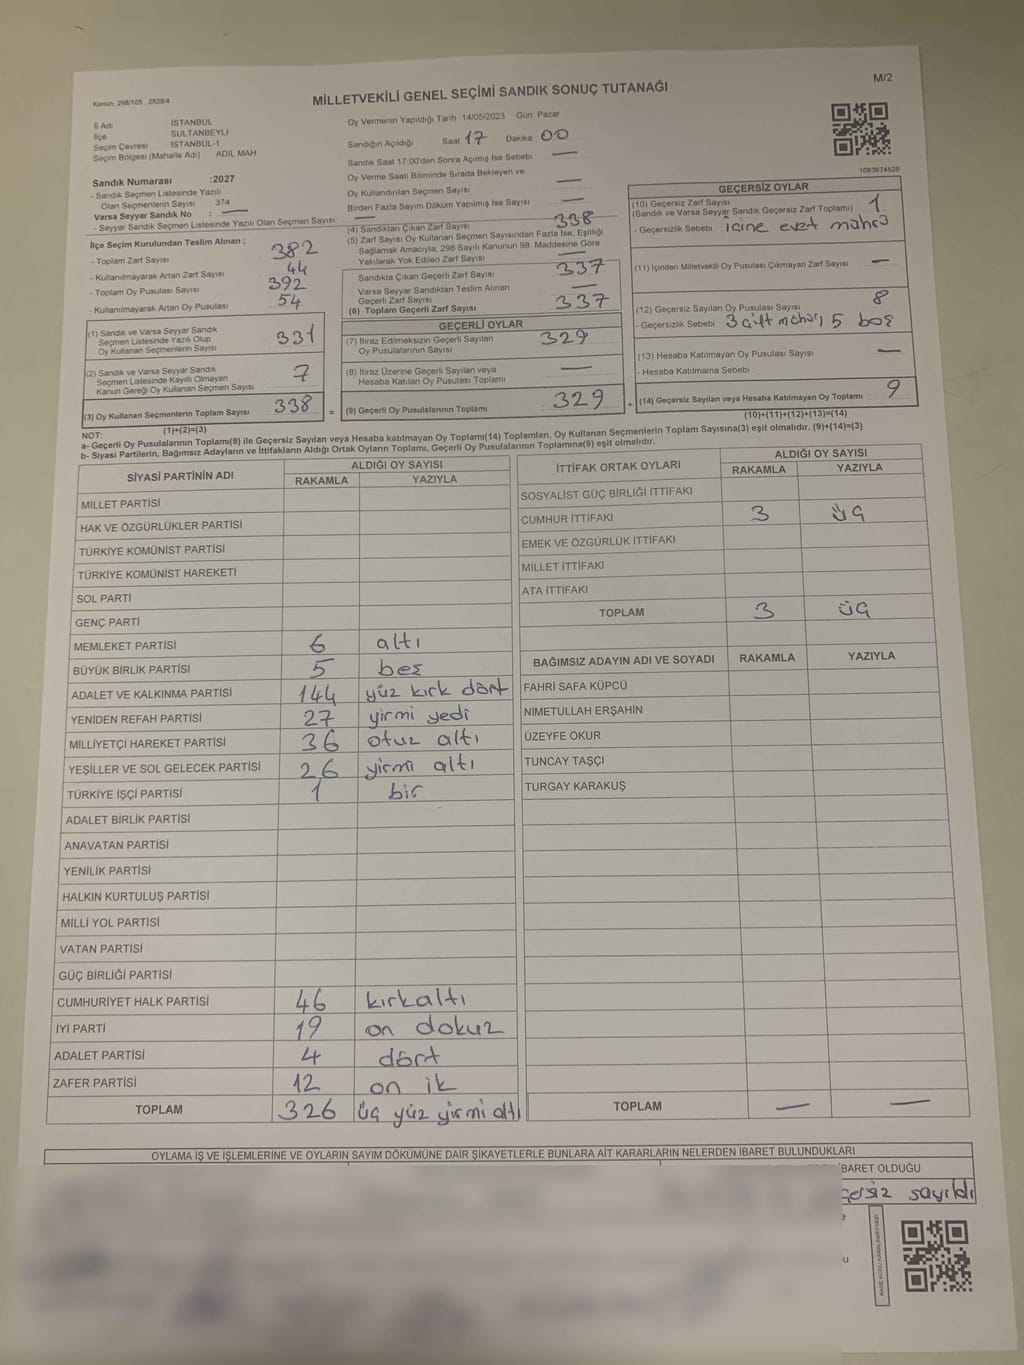 Kanun: 298/105 , 2839/4
MİLLETVEKİLİ GENEL SEÇİMİ SANDIK SONUÇ TUTANAĞI
M/2
İl Adı İSTANBUL
İlçe SULTANBEYLİ
Seçim Çevresi İSTANBUL-1
Seçim Bölgesi (Mahalle Adı) ADİL MAH
Sandık Numarası :2027
- Sandık Seçmen Listesinde Yazılı
Olan Seçmenlerin Sayısı : 374
Varsa Seyyar Sandık No : —
- Seyyar Sandık Seçmen Listesinde Yazılı Olan Seçmen Sayısı : —
Oy Vermenin Yapıldığı Tarih 14/05/2023 Gün: Pazar
Sandığın Açıldığı Saat 17 Dakika 00
Sandık Saat 17:00'den Sonra Açımış İse Sebebi : —
Oy Verme Saati Bitiminde Sırada Bekleyen ve
Oy Kullandırılan Seçmen Sayısı —
Birden Fazla Sayım Döküm Yapılmış İse Sayısı —
1083674520
İlçe Seçim Kurulundan Teslim Alınan ;
- Toplam Zarf Sayısı 382
- Kullanılmayarak Artan Zarf Sayısı 44
- Toplam Oy Pusulası Sayısı 392
- Kullanılmayarak Artan Oy Pusulası 54
(1) Sandık ve Varsa Seyyar Sandık
Seçmen Listesinde Yazılı Olup
Oy Kullanan Seçmenlerin Sayısı 331
(2) Sandık ve Varsa Seyyar Sandık
Seçmen Listesinde Kayıtlı Olmayan
Kanun Gereği Oy Kullanan Seçmen Sayısı 7
(3) Oy Kullanan Seçmenlerin Toplam Sayısı 338 =
(1)+(2)=(3)
(4) Sandıktan Çıkan Zarf Sayısı 338
(5) Zarf Sayısı Oy Kullanan Seçmen Sayısından Fazla İse, Eşitliği
Sağlamak Amacıyla; 298 Sayılı Kanunun 98. Maddesine Göre
Yakılarak Yok Edilen Zarf Sayısı —
Sandıkta Çıkan Geçerli Zarf Sayısı 337
Varsa Seyyar Sandıktan Teslim Alınan
Geçerli Zarf Sayısı —
(6) Toplam Geçerli Zarf Sayısı 337
GEÇERLİ OYLAR
(7) İtiraz Edilmeksizin Geçerli Sayılan
Oy Pusulalarının Sayısı 329
(8) İtiraz Üzerine Geçerli Sayılan veya
Hesaba Katılan Oy Pusulası Toplamı —
(9) Geçerli Oy Pusulalarının Toplamı 329 +
GEÇERSİZ OYLAR
(10) Geçersiz Zarf Sayısı
(Sandık ve Varsa Seyyar Sandık Geçersiz Zarf Toplamı) 1
- Geçersizlik Sebebi : içine evet mührü
(11) İçinden Milletvekili Oy Pusulası Çıkmayan Zarf Sayısı —
(12) Geçersiz Sayılan Oy Pusulası Sayısı 8
- Geçersizlik Sebebi : 3 çift mühür, 5 boş
(13) Hesaba Katılmayan Oy Pusulası Sayısı —
- Hesaba Katılmama Sebebi :
(14) Geçersiz Sayılan veya Hesaba Katılmayan Oy Toplamı 9
(10)+(11)+(12)+(13)=(14)
NOT:
a- Geçerli Oy Pusulalarının Toplamı(9) ile Geçersiz Sayılan veya Hesaba katılmayan Oy Toplamı(14) Toplamları, Oy Kullanan Seçmenlerin Toplam Sayısına(3) eşit olmalıdır. (9)+(14)=(3)
b- Siyasi Partilerin, Bağımsız Adayların ve İttifakların Aldığı Ortak Oyların Toplamı, Geçerli Oy Pusulalarının Toplamına(9) eşit olmalıdır.
SİYASİ PARTİNİN ADI ALDIĞI OY SAYISI
RAKAMLA YAZIYLA
MİLLET PARTİSİ
HAK VE ÖZGÜRLÜKLER PARTİSİ
TÜRKİYE KOMÜNİST PARTİSİ
TÜRKİYE KOMÜNİST HAREKETİ
SOL PARTİ
GENÇ PARTİ
MEMLEKET PARTİSİ 6 altı
BÜYÜK BİRLİK PARTİSİ 5 beş
ADALET VE KALKINMA PARTİSİ 144 yüz kırk dört
YENİDEN REFAH PARTİSİ 27 yirmi yedi
MİLLİYETÇİ HAREKET PARTİSİ 36 otuz altı
YEŞİLLER VE SOL GELECEK PARTİSİ 26 yirmi altı
TÜRKİYE İŞÇİ PARTİSİ 1 bir
ADALET BİRLİK PARTİSİ
ANAVATAN PARTİSİ
YENİLİK PARTİSİ
HALKIN KURTULUŞ PARTİSİ
MİLLİ YOL PARTİSİ
VATAN PARTİSİ
GÜÇ BİRLİĞİ PARTİSİ
CUMHURİYET HALK PARTİSİ 46 kırkaltı
İYİ PARTİ 19 on dokuz
ADALET PARTİSİ 4 dört
ZAFER PARTİSİ 12 on ik
TOPLAM 326 üç yüz yirmi altı
İTTİFAK ORTAK OYLARI ALDIĞI OY SAYISI
RAKAMLA YAZIYLA
SOSYALİST GÜÇ BİRLİĞİ İTTİFAKI
CUMHUR İTTİFAKI 3 üç
EMEK VE ÖZGÜRLÜK İTTİFAKI
MİLLET İTTİFAKI
ATA İTTİFAKI
TOPLAM 3 üç
BAĞIMSIZ ADAYIN ADI VE SOYADI RAKAMLA YAZIYLA
FAHRİ SAFA KÜPCÜ
NİMETULLAH ERŞAHİN
ÜZEYFE OKUR
TUNCAY TAŞÇI
TURGAY KARAKUŞ
TOPLAM — —
OYLAMA İŞ VE İŞLEMLERİNE VE OYLARIN SAYIM DÖKÜMÜNE DAİR ŞİKAYETLERLE BUNLARA AİT KARARLARIN NELERDEN İBARET BULUNDUKLARI
BARET OLDUĞU
sayıldı